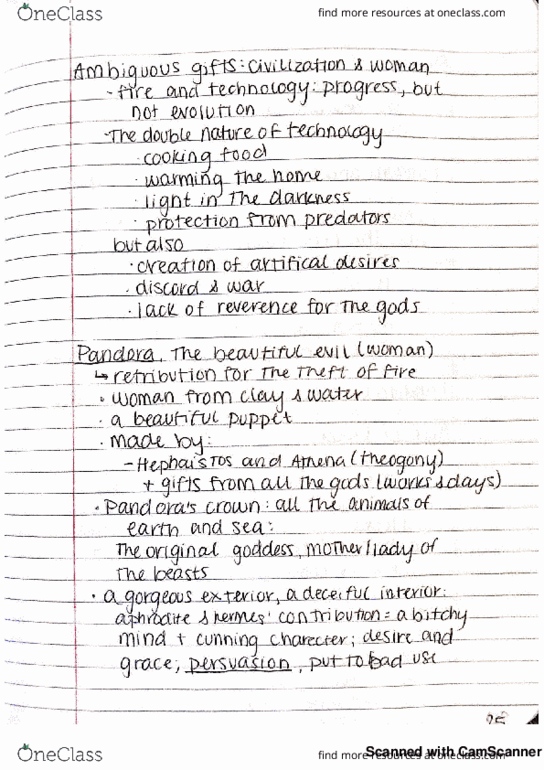 OneClass
find more resources at oneclass.com
Ambiguous gifts: civilization & woman
- fire and technology: progress, but
not evolution
· The double nature of technology
· cooking food
· warming the home
· light in the darkness
· protection from predators
but also
· creation of artifical desires
· discord & war
· lack of reverence for the gods
Pandora, The beautiful evil (woman)
↳ retribution for the theft of fire
· woman from clay & water
· a beautiful puppet
· made by:
- Hephaistos and Athena (theogony)
+ gifts from all the gods (works & days)
· Pandora's crown: all the animals of
earth and sea:
The original goddess, mother/lady of
the beasts
· a gorgeous exterior, a deceiful interior:
aphrodite & hermes' contribution = a bitchy
mind + cunning charecter; desire and
grace; persuasion, put to bad use
OneClass
find more resources at oneclass.com
Scanned with CamScanner